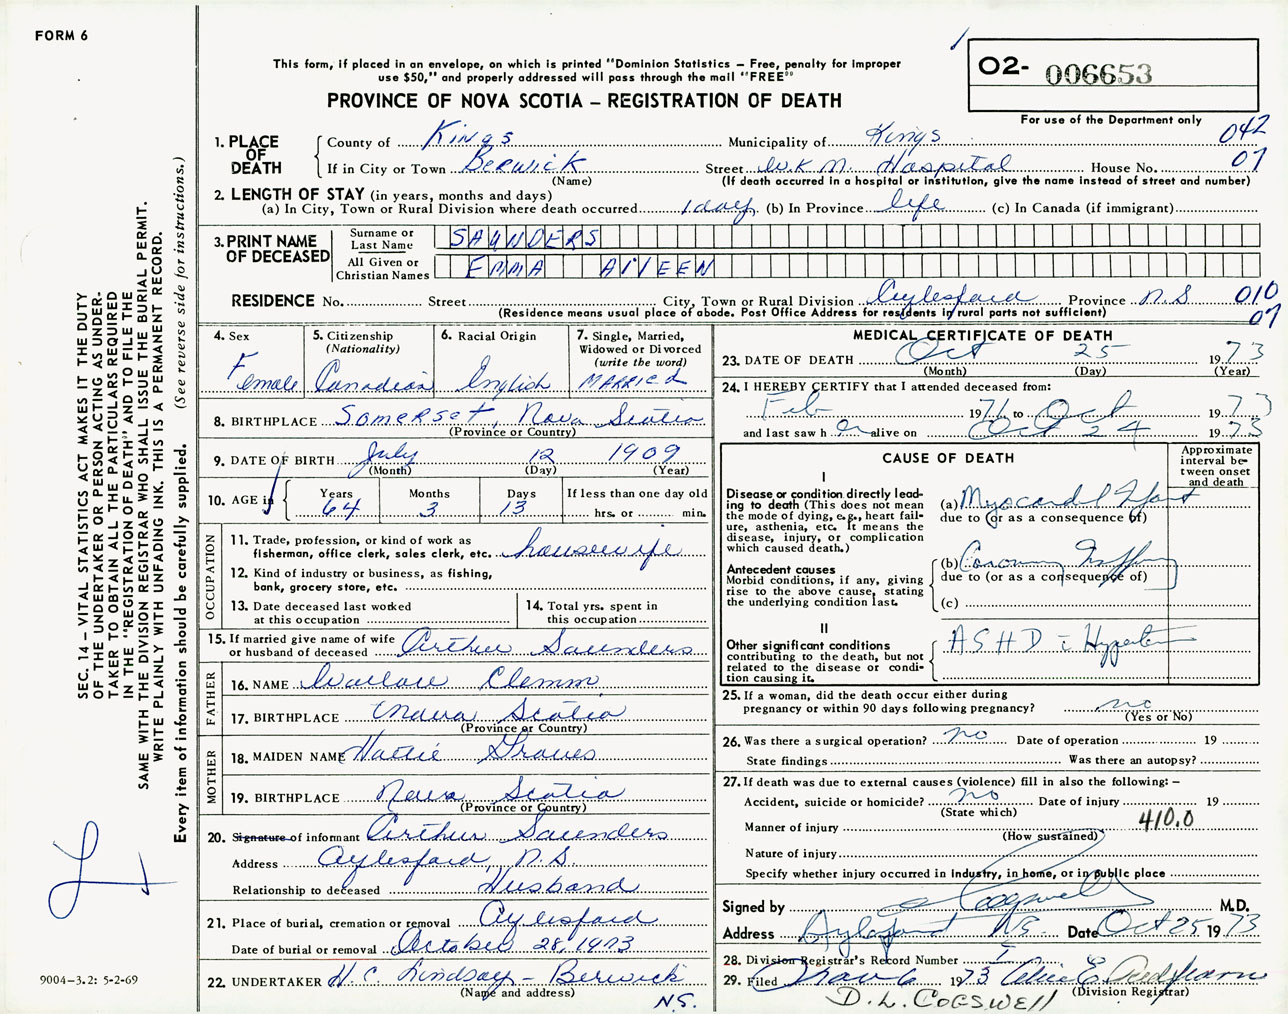 FORM 6
This form, if placed in an envelope, on which is printed "Dominion Statistics – Free, penalty for improper
use $50," and properly addressed will pass through the mail "FREE"
PROVINCE OF NOVA SCOTIA – REGISTRATION OF DEATH
02- 006653
For use of the Department only
1. PLACE OF DEATH
County of Kings Municipality of Kings 042
If in City or Town Berwick Street W.K.M. Hospital House No. 07
(Name) (If death occurred in a hospital or institution, give the name instead of street and number)
2. LENGTH OF STAY (in years, months and days)
(a) In City, Town or Rural Division where death occurred 1 day (b) In Province life (c) In Canada (if immigrant)
3. PRINT NAME OF DECEASED
Surname or Last Name SAUNDERS
All Given or Christian Names EMMA AIVEEN
RESIDENCE No. Street City, Town or Rural Division Aylesford Province N.S 010
(Residence means usual place of abode. Post Office Address for residents in rural parts not sufficient) 07
4. Sex Female
5. Citizenship (Nationality) Canadian
6. Racial Origin English
7. Single, Married, Widowed or Divorced (write the word) MARRIED
8. BIRTHPLACE Somerset, Nova Scotia
(Province or Country)
9. DATE OF BIRTH July 12 1909
(Month) (Day) (Year)
10. AGE in Years 64 Months 3 Days 13 If less than one day old hrs. or min.
OCCUPATION
11. Trade, profession, or kind of work as
fisherman, office clerk, sales clerk, etc. housewife
12. Kind of industry or business, as fishing,
bank, grocery store, etc.
13. Date deceased last worked
at this occupation
14. Total yrs. spent in
this occupation
15. If married give name of wife
or husband of deceased Arthur Saunders
FATHER
16. NAME Wallace Clemm
17. BIRTHPLACE Nova Scotia
(Province or Country)
MOTHER
18. MAIDEN NAME Hattie Graves
19. BIRTHPLACE Nova Scotia
(Province or Country)
20. Signature of informant Arthur Saunders
Address Aylesford, N.S.
Relationship to deceased Husband
21. Place of burial, cremation or removal Aylesford
Date of burial or removal October 28, 1973
22. UNDERTAKER H.C. Lindsay - Berwick
(Name and address) N.S.
MEDICAL CERTIFICATE OF DEATH
23. DATE OF DEATH Oct 25 1973
(Month) (Day) (Year)
24. I HEREBY CERTIFY that I attended deceased from:
Feb 1971 to Oct 1973
and last saw her alive on Oct 24 1973
CAUSE OF DEATH
Approximate interval between onset and death
I
Disease or condition directly leading to death (This does not
mean the mode of dying, e.g., heart failure, asthenia, etc. It means the
disease, injury, or complication
which caused death.)
(a) Myocardial Infarct
due to (or as a consequence of)
Antecedent causes
Morbid conditions, if any, giving
rise to the above cause, stating
the underlying condition last.
(b) Coronary
due to (or as a consequence of)
(c)
II
Other significant conditions
contributing to the death, but not
related to the disease or condition causing it.
ASHD c Hyperten
25. If a woman, did the death occur either during
pregnancy or within 90 days following pregnancy? no
(Yes or No)
26. Was there a surgical operation? no Date of operation 19
State findings Was there an autopsy?
27. If death was due to external causes (violence) fill in also the following: –
Accident, suicide or homicide? no Date of injury 19
(State which)
Manner of injury 410.0
(How sustained)
Nature of injury
Specify whether injury occurred in industry, in home, or in public place
Signed by Cogswell M.D.
Address Aylesford NS. Date Oct 25 1973
28. Division Registrar's Record Number
29. Filed Nov 6 1973
(Division Registrar)
D. L. COGSWELL
SEC. 14 – VITAL STATISTICS ACT MAKES IT THE DUTY
OF THE UNDERTAKER OR PERSON ACTING AS UNDER-
TAKER TO OBTAIN ALL THE PARTICULARS REQUIRED
IN THE "REGISTRATION OF DEATH" AND TO FILE THE
SAME WITH THE DIVISION REGISTRAR WHO SHALL ISSUE THE BURIAL PERMIT.
WRITE PLAINLY WITH UNFADING INK. THIS IS A PERMANENT RECORD.
Every item of information should be carefully supplied. (See reverse side for instructions.)
9004-3.2: 5-2-69